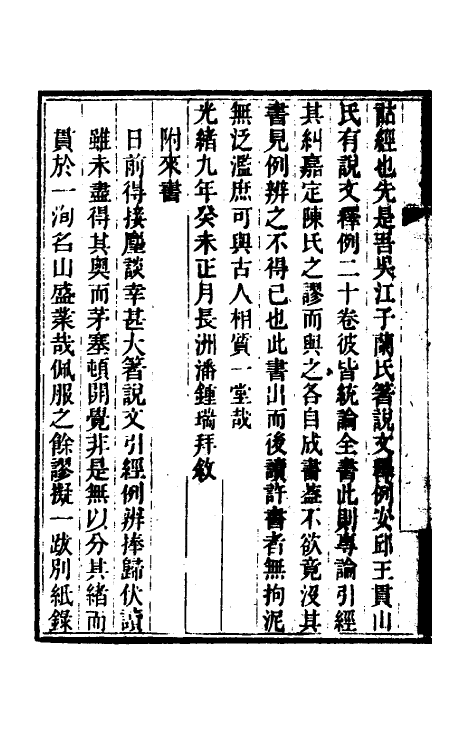 詁經也先是吾吳江子蘭氏箸說文釋例安邱王貫山
氏有說文釋例二十卷彼皆統論全書此則專論引經
其糾嘉定陳氏之謬而與之各自成書蓋不欲竟沒其
書見例辨之不得已也此書出而後讀許書者無拘泥
無泛濫庶可與古人相質一堂哉
光緒九年癸未正月長洲潘鍾瑞拜敘
附來書
日前得接麈談幸甚大箸說文引經例辨捧歸伏讀
雖未盡得其奧而茅塞頓開覺非是無以分其緒而
貫於一洵名山盛業哉佩服之餘謬擬一跋別紙錄